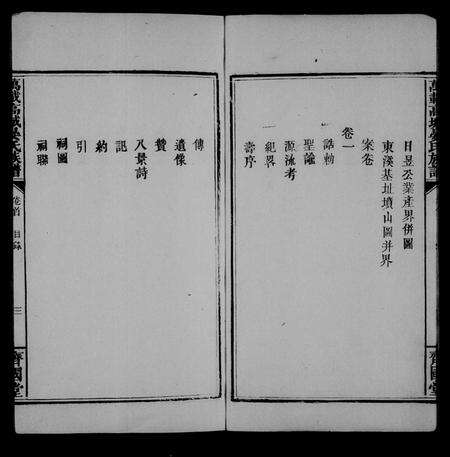 日昱公業產界併圖
東溪基址墳山圖并界
案卷
卷一
誥勅
聖諭
源流考
紀畧
壽序
齊國堂
傳
遺像
贊
八景詩
記
約
引
祠圖
祠聯
萬載高城姜氏族譜
卷首
目錄
三
齊國堂